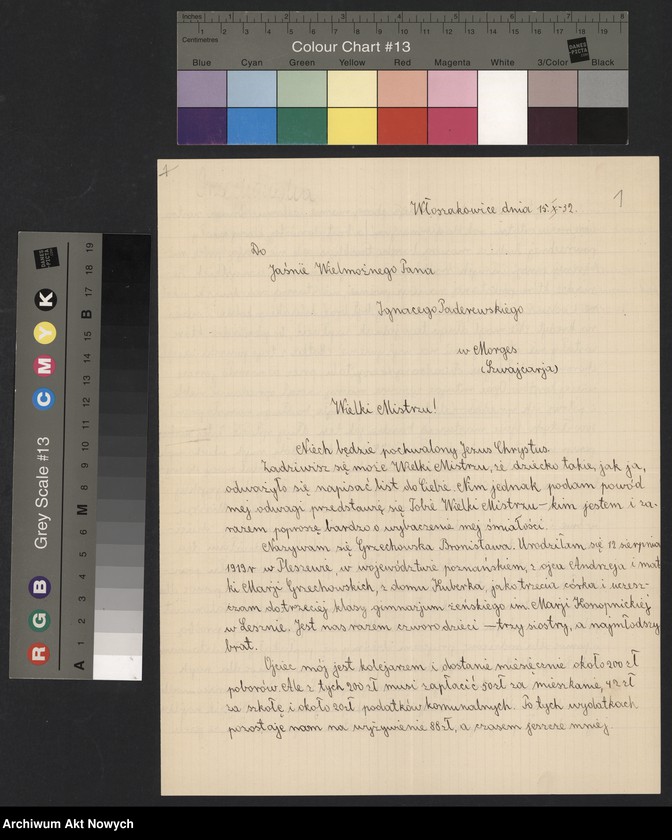 Inches 1 2 3 4 5 6 7 8
Centimetres 1 2 3 4 5 6 7 8 9 10 11 12 13 14 15 16 17 18 19
Colour Chart #13
DANES PICTA
Blue Cyan Green Yellow Red Magenta White 3/Color Black
Grey Scale #13
DANES PICTA
R G B C M Y K
A 1 2 3 4 5 6 M 8 9 10 11 12 13 14 15 B 17 18 19
1
Włoszakowice dnia 15.X-32.
Do
Jaśnie Wielmożnego Pana
Ignacego Paderewskiego
w Morges
(Szwajcarja)
Wielki Mistrzu!
Niech będzie pochwalony Jezus Chrystus.
Zadziwisz się może Wielki Mistrzu, że dziecko takie, jak ja,
odważyło się napisać list do Ciebie. Nim jednak podam powód
mej odwagi przedstawię się Tobie Wielki Mistrzu – kim jestem i za-
razem poproszę bardzo o wybaczenie mej śmiałości.
Nazywam się Grzechowska Bronisława. Urodziłam się 12 sierpnia
1919 r w Pleszewie, w województwie poznańskiem, z ojca Andrzeja i mat
ki Marji Grzechowskich, z domu Kuberka, jako trzecia córka i uczesz-
czam do trzeciej klasy gimnazjum żeńskiego im. Marji Konopnickiej
w Lesznie. Jest nas razem czworo dzieci – trzy siostry, a najmłodszy
brat.
Ojciec mój jest kolejarzem i dostanie miesięcznie około 200 zł
poborów. Ale z tych 200 zł musi zapłacić 50 zł za mieszkanie, 42 zł
za szkołę i około 20 zł podatków komunalnych. Po tych wydatkach
pozostaje nam na wyżywienie 88 zł, a czasem jeszcze mniej.
Archiwum Akt Nowych